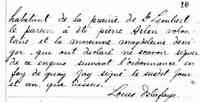 10
habitant de la prairie de St Lambert
le parein à été pierre Helen volon
taire et la mareinne magdeleine Seni
gor, qui ont declaré ne savoir signer
de ce enquis suivant l'ordonnance en
foy de quoy Jay signé le susdit Jour
et an que dessus.
Louis Delafaye